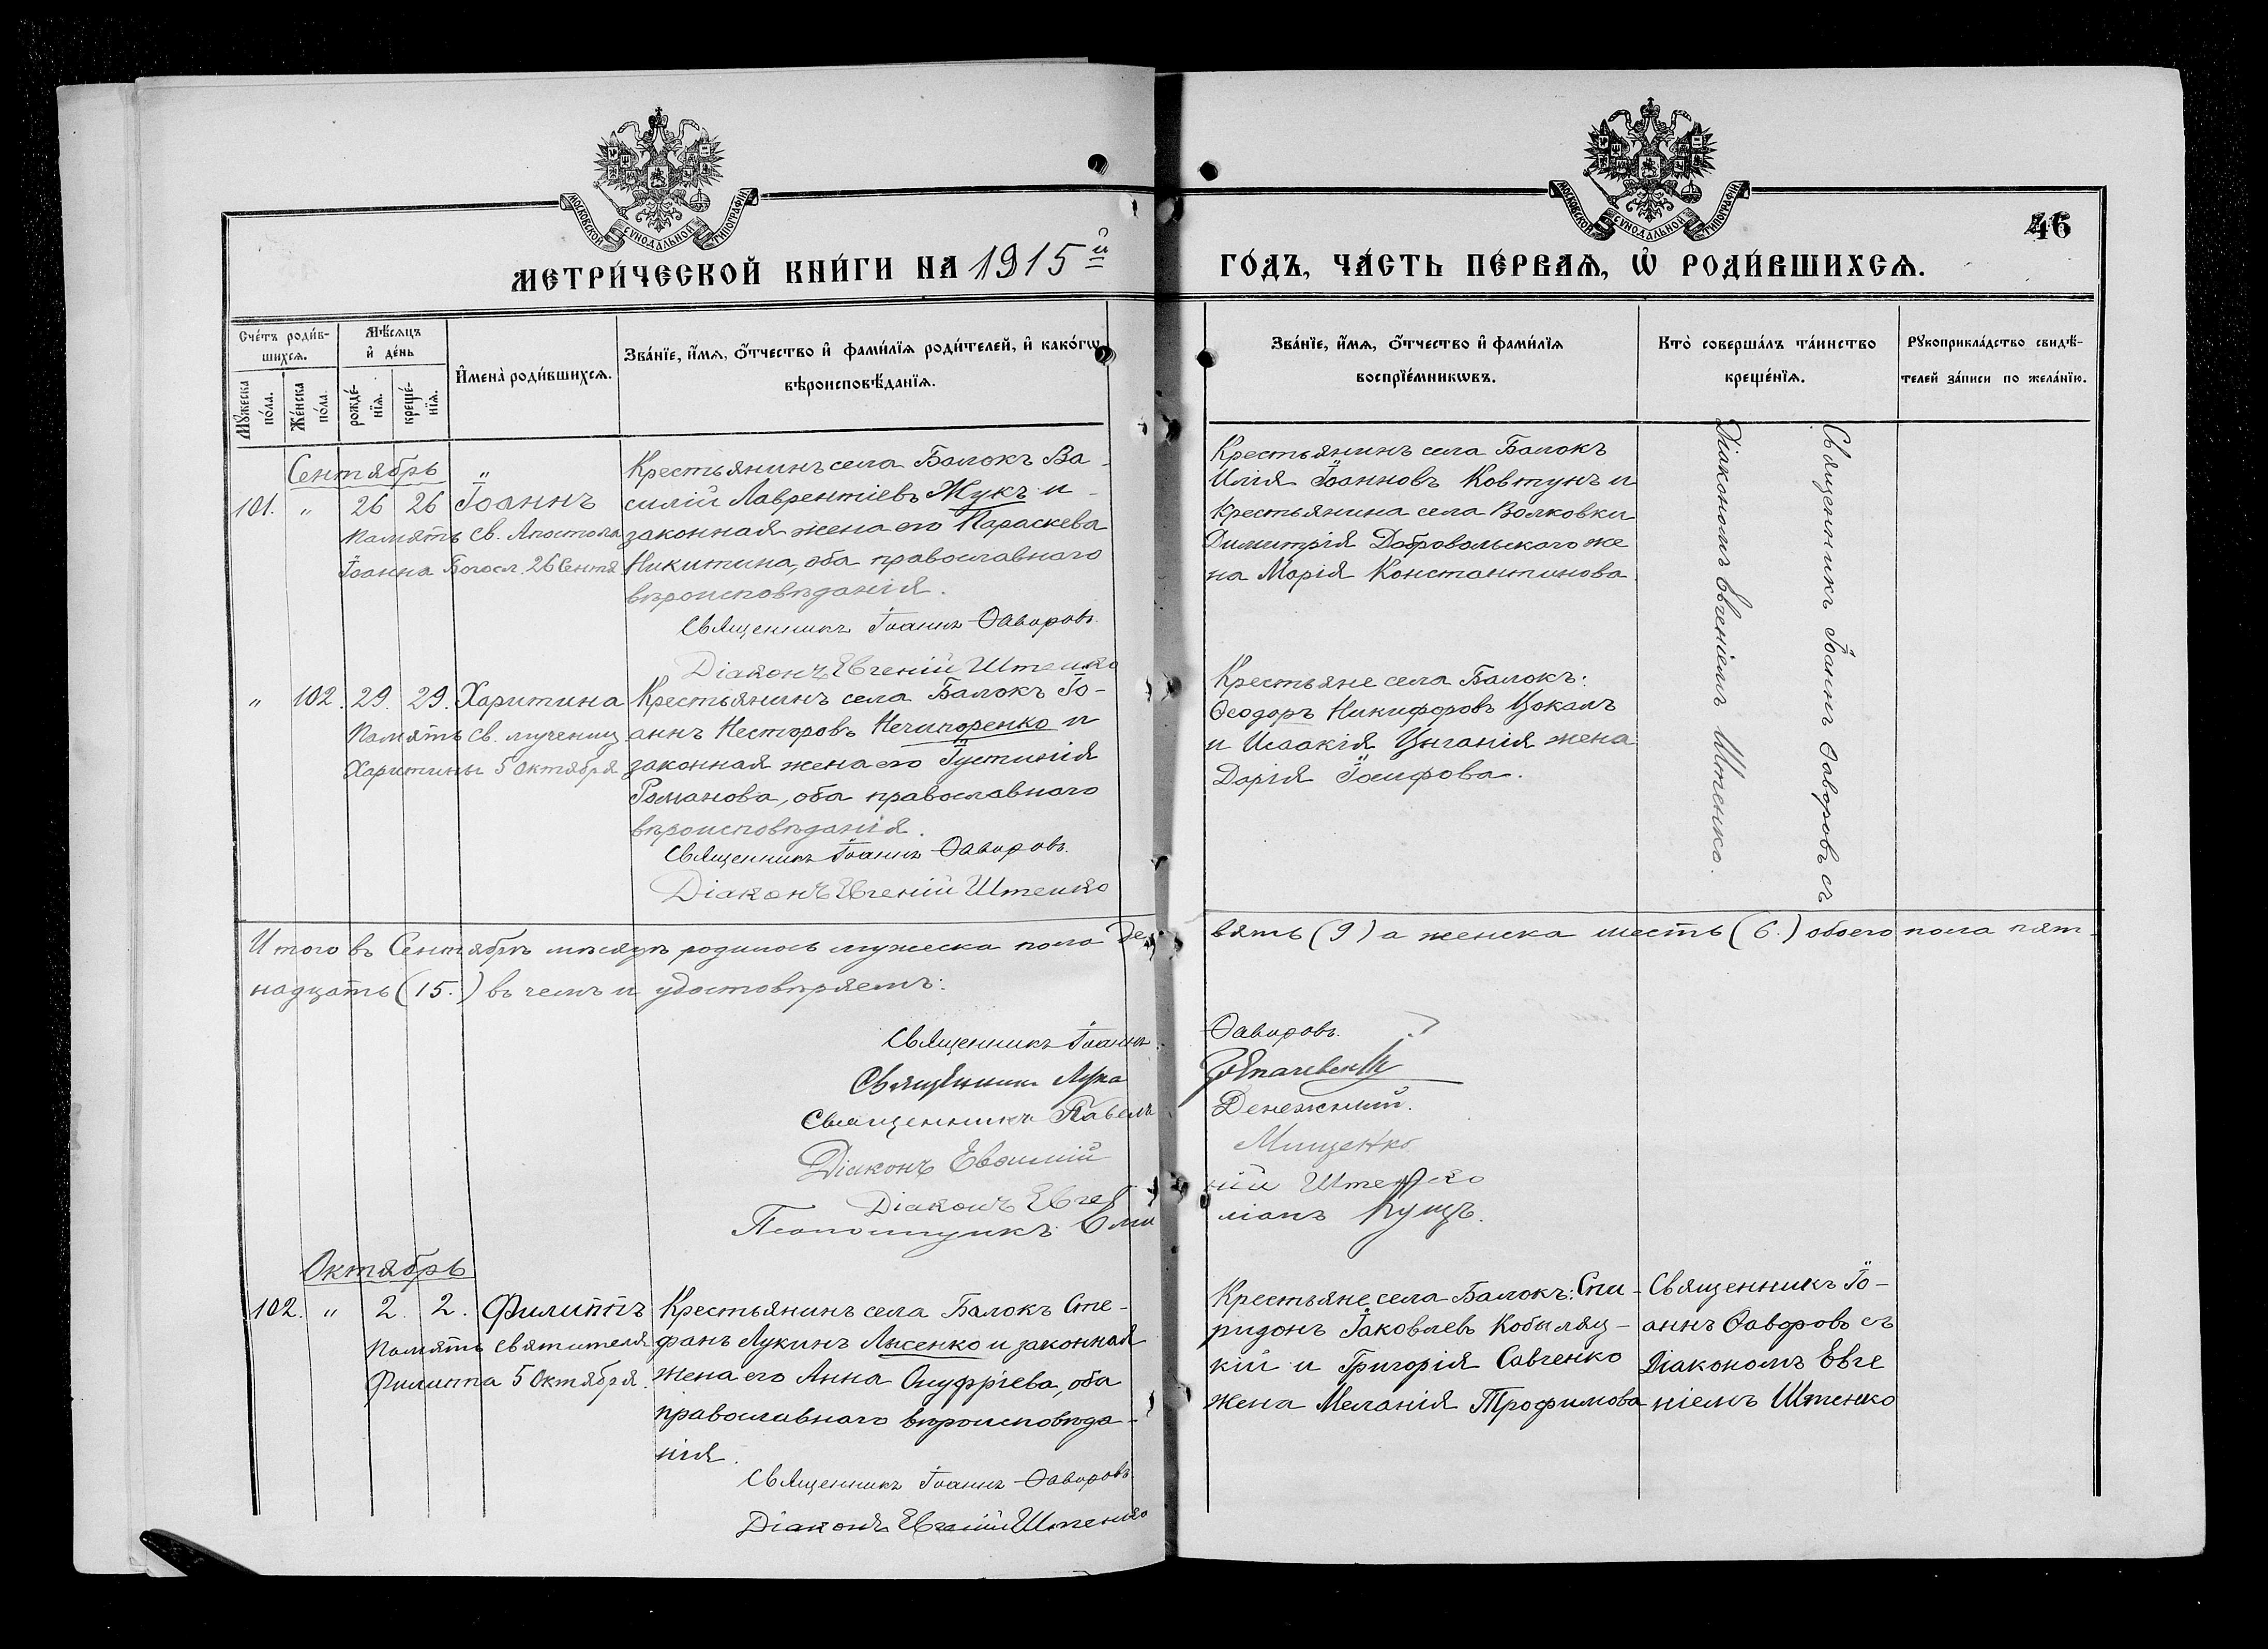 МОСКОВСКОЙ СѴНОДАЛЬНОЙ ТИПОГРАФІИ
МОСКОВСКОЙ СѴНОДАЛЬНОЙ ТИПОГРАФІИ
46
МЕТРИ́ЧЕСКОЙ КНИ́ГИ НА 1915й ГО́ДЪ, ЧА́СТЬ ПЕ́РВАѦ, Ѡ҆ РОДИ́ВШИХСѦ.
Сче́тъ роди́в-
шихсѧ.
Мꙋ́жеска по́ла.
Же́нска по́ла.
Мѣ́сѧцъ
и҆ де́нь
рожде́-
нїѧ.
креще́-
нїѧ.
И҆мена̀ роди́вшихсѧ.
Зва́нїе, и҆́мѧ, о҆́тчество и҆ фами́лїѧ роди́телей, и҆ како́гѡ
вѣроисповѣ́данїѧ.
Зва́нїе, и҆́мѧ, о҆́тчество и҆ фами́лїѧ
воспрїе́мникѡвъ.
Кто̀ соверша́лъ та́инство
креще́нїѧ.
Рꙋкоприкла́дство свидѣ́-
телей за́писи по жела́нїю.
Сентябрь
101. " 26 26 Іоаннъ
Память св. Апостола
Іоанна Богосл. 26 Сентя
Крестьянинъ села Балокъ Ва-
силій Лаврентіевъ Жукъ и
законная жена его Параскева
Никитина, оба православнаго
вѣроисповѣданія.
Священникъ Іоаннъ Ѳаворовъ.
Діаконъ Евгеній Штенко
Крестьянинъ села Балокъ
Илія Іоанновъ Ковтунъ и
Крестьянина села Волковки
Димитрія Добровольскаго же
на Марія Константинова
Священникъ Іоаннъ Ѳаворовъ съ
Діакономъ Евгеніемъ Штенко.
" 102. 29. 29. Харитина
Память св. мучениц
Харитины 5 Октября
Крестьянинъ села Балокъ Іо-
аннъ Несторовъ Нечипоренко и
законная жена его Іустинія
Романова, оба православнаго
вѣроисповѣданія.
Священникъ Іоаннъ Ѳаворовъ.
Діаконъ Евгеній Штенко
Крестьяне села Балокъ:
Ѳеодоръ Никифоровъ Цокалъ
и Исаакія Цыганія жена
Дарія Іосифова.
Итого въ Сентябрѣ мѣсяцѣ родилось мужеска пола де вять (9) а женска шесть (6.) обоего пола пят-
надцать (15.) въ чемъ и удостовѣряемъ:
Священникъ Іоаннъ Ѳаворовъ.
Священникъ Лука
Священникъ Павелъ Денежный.
Діаконъ Евѳимій Мищенко
Діаконъ Евге ній Штенко
Псаломщикъ Еми ліанъ Кущъ.
Октябрь
102. " 2. 2. Филиппъ
Память святителя
Филиппа 5 Октября.
Крестьянинъ села Балокъ Сте-
фанъ Лукинъ Лысенко и законная
жена его Анна Онуфріева, оба
православнаго вѣроисповѣда-
нія.
Священникъ Іоаннъ Ѳаворовъ
Діаконъ Евгеній Штенко
Крестьяне села Балокъ: Спи-
ридонъ Іаковлевъ Кобыляц-
кій и Григорія Савченко
жена Меланія Трофимова
Священникъ Іо-
аннъ Ѳаворовъ съ
Діакономъ Евге
ніемъ Штенко